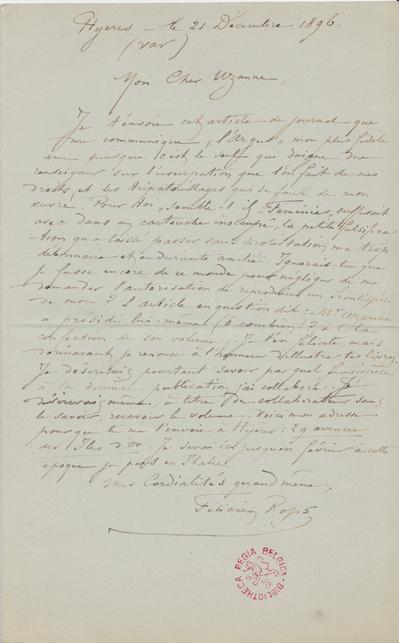 Hyères – le 21 Décembre 1896.
(Var)
Mon Cher Uzanne,
Je t'envoie cet article de journal que
me communique „l'Argus" mon plus fidèle
ami puisque c'est le seul qui daigne me
renseigner sur l'insertion que l'on fait de mes
droits, et les tripatouillages qui se font de mon
œuvre. Pour toi, semble-t-il, „Féminies" suffisait
avec dans un cartouche inoccupé, la petite falsifica-
-tion qu'a laissé passer sans protestation, ma trop
débonnaire et endurante amitié. Ignorais-tu que
je fusse encore de ce monde pour négliger de me
demander l'autorisation de reproduire un frontispice
de moi? L'article en question dit: Mr Uzanne
a présidé lui-même (ô combien!) à la
confection de son volume. Je t'en félicite, mais
dorénavant je renonce à l'honneur d'illustrer tes livres.
Je désirerais pourtant savoir par quel frontispice
à ta dernière publication j'ai collaboré. Je
désirerais même, à titre de collaborateur sans
le savoir, recevoir le volume. Voici mon adresse
pour que tu me l'envoie à Hyères: 29 avenue
des Iles d'Or. Je serai ici jusqu'en février à cette
époque je pars en Italie.
Mes Cordialités quand même,
Félicien Rops
BIBLIOTHECA REGIA BELGICA